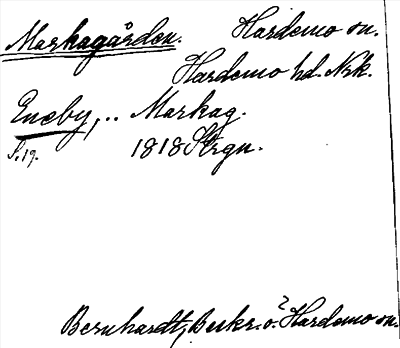 Markagården. Hardemo sn.
Hardemo hd. Nrk.
Eneby, .. Markag.
S. 19. 1818 Strgn.
Bernhardt, Beskr. ö. Hardemo sn.